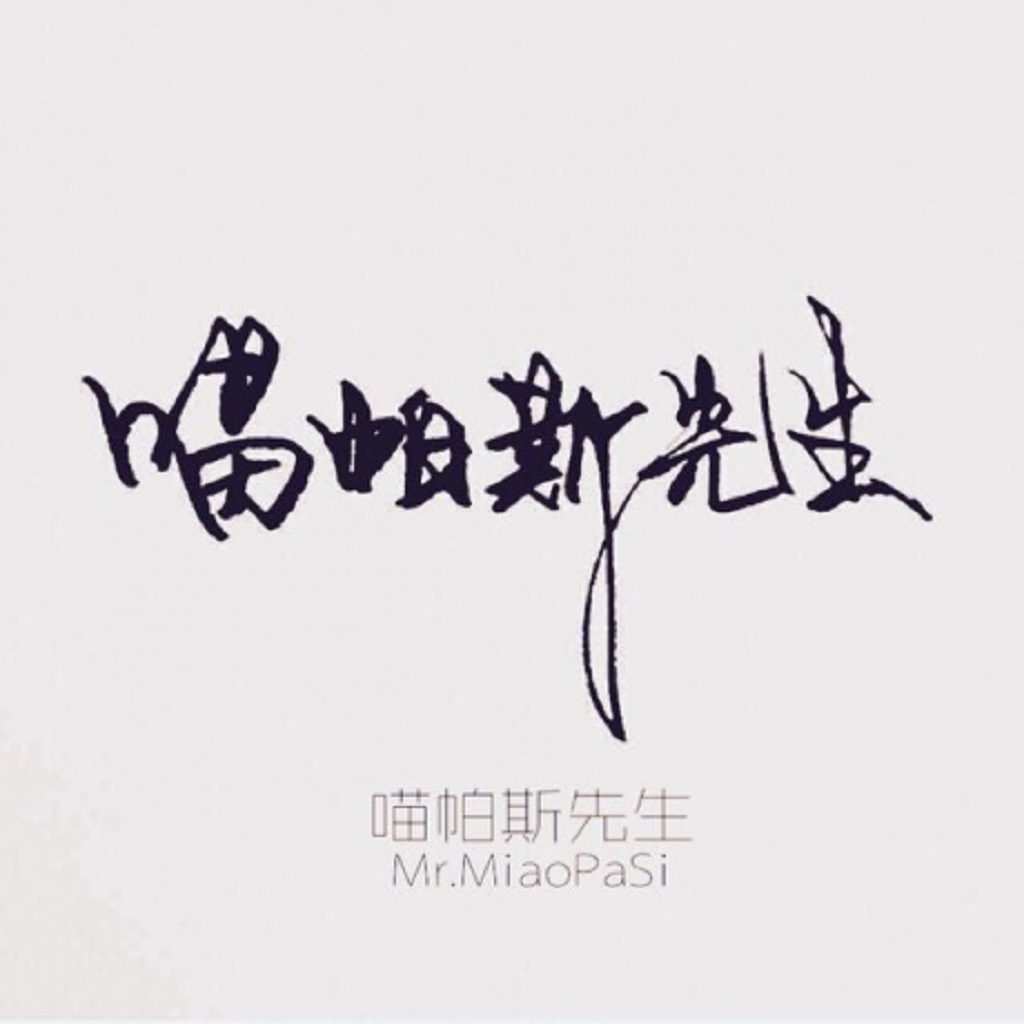 喵帕斯先生
喵帕斯先生
Mr.MiaoPaSi